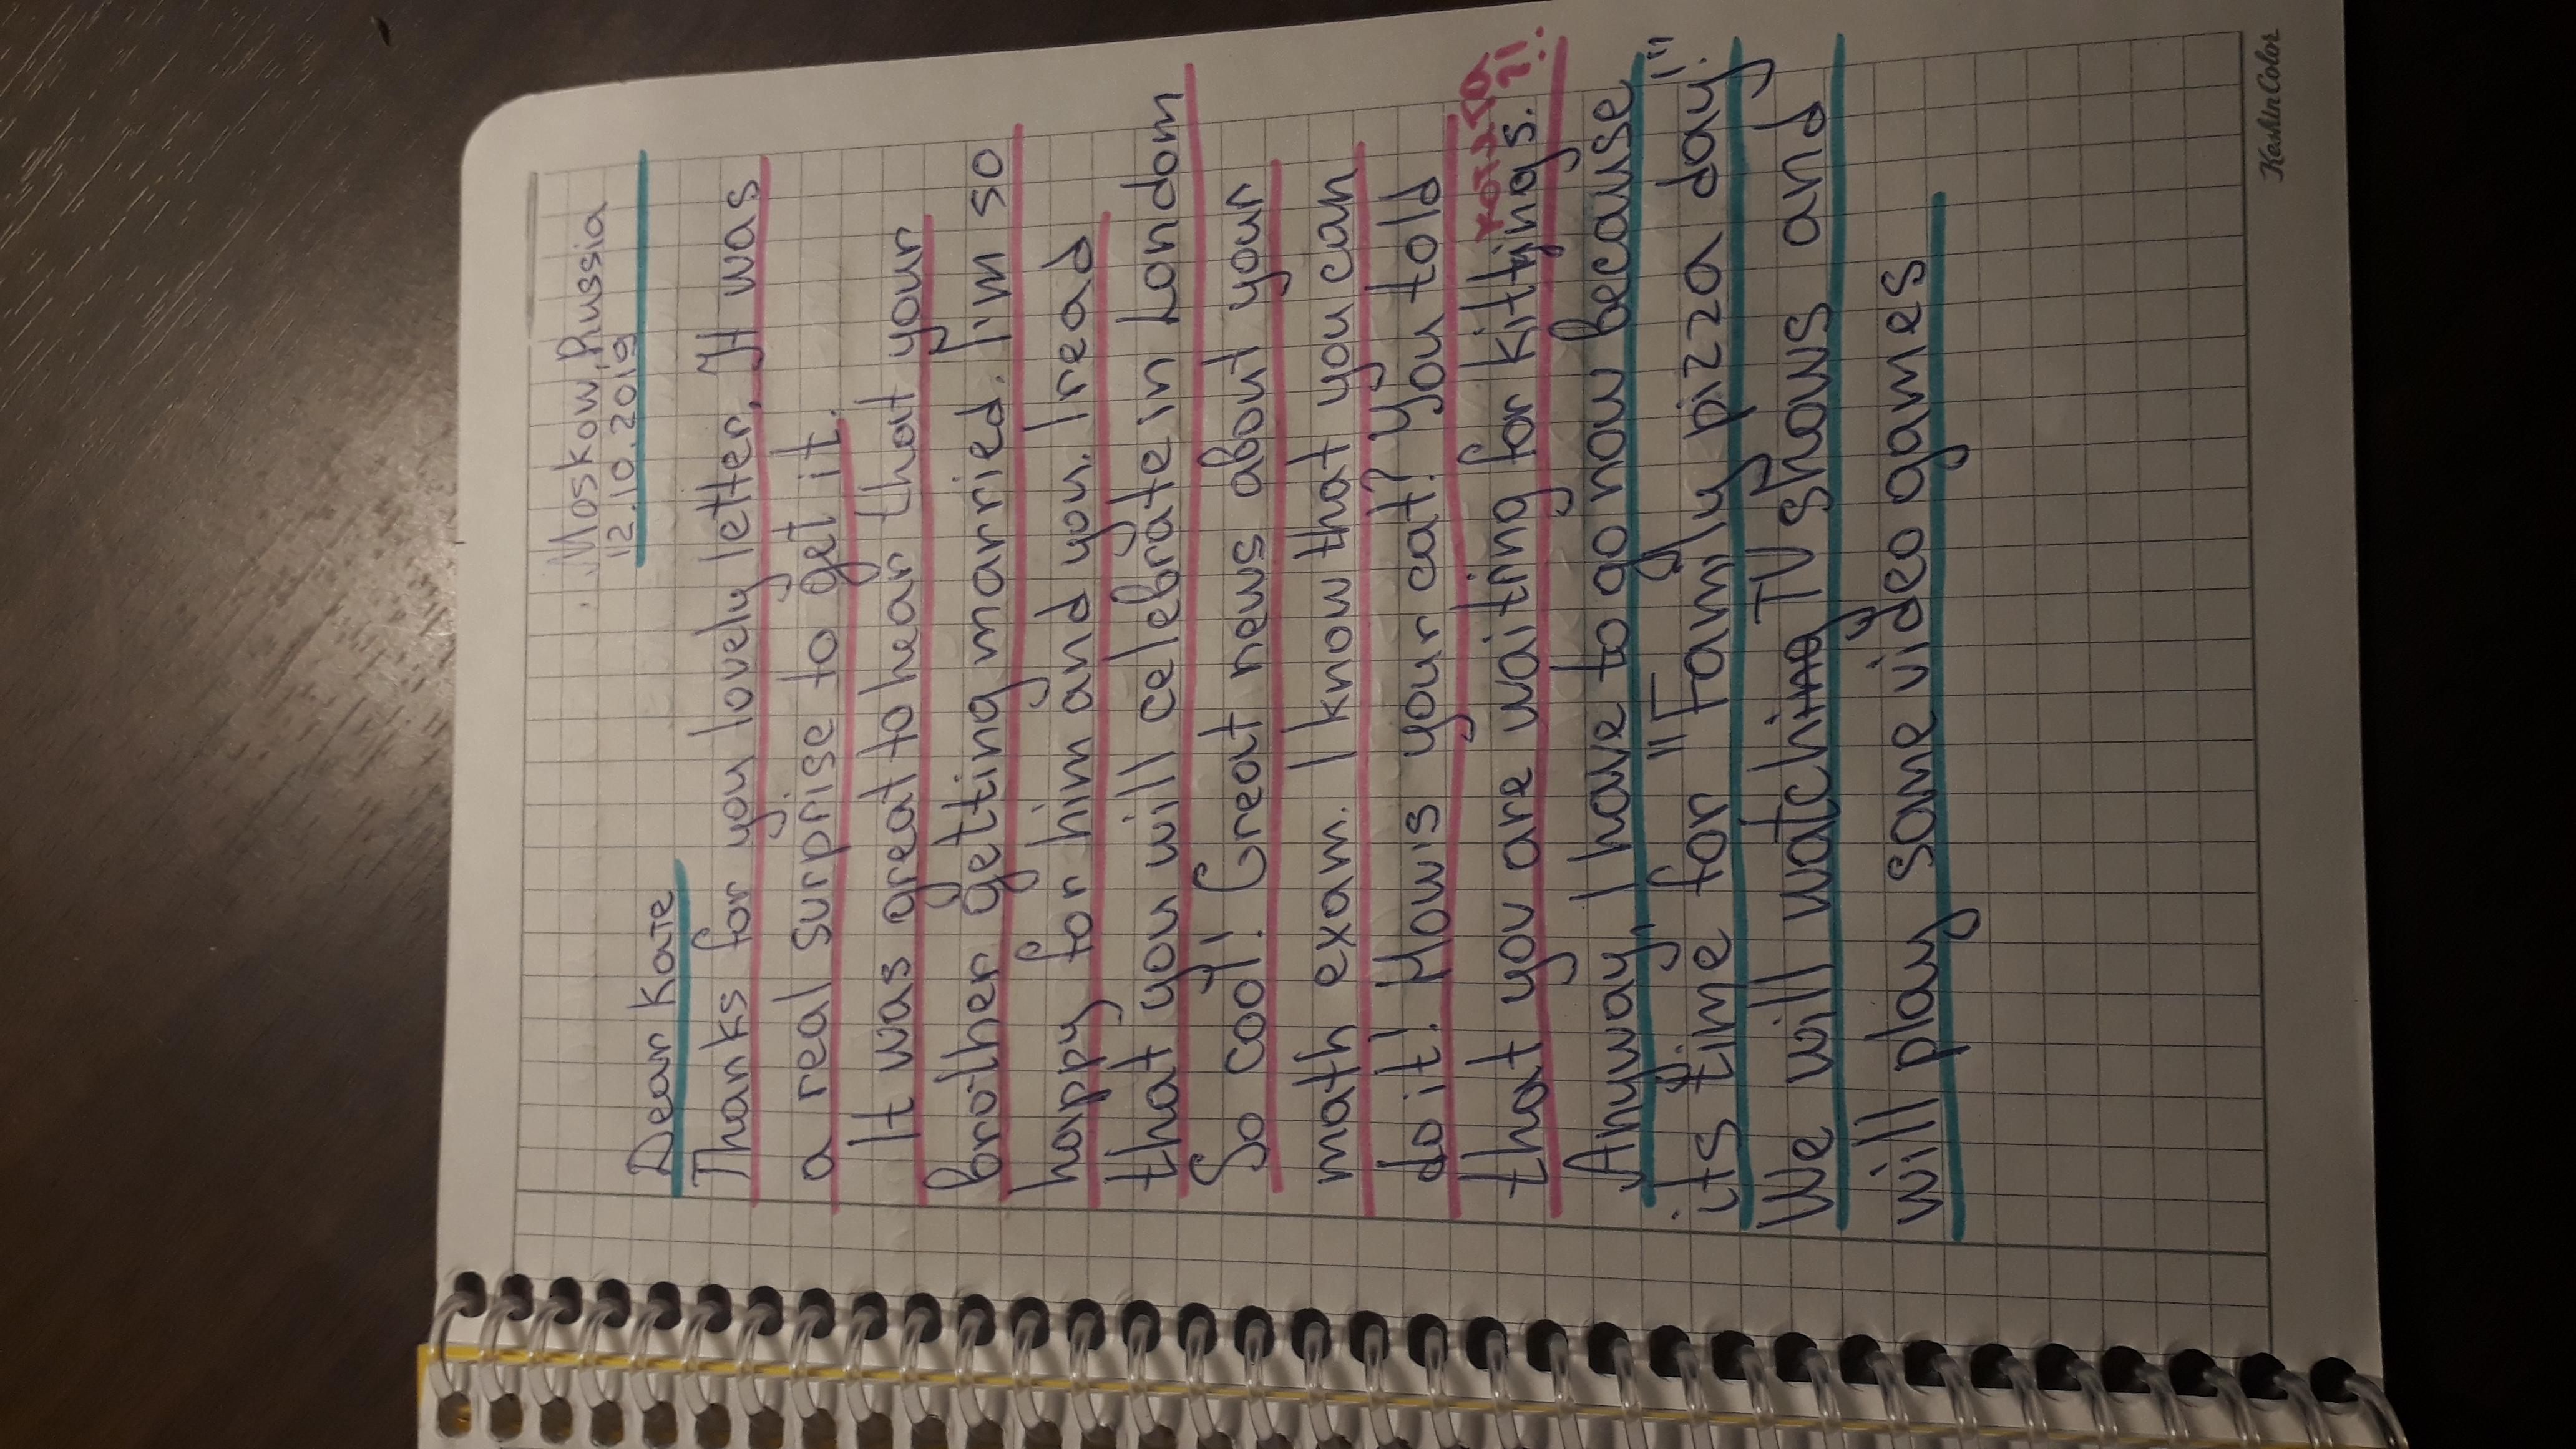 Moskow, Russia
12.10.2019
Dear Kate
Thanks for you lovely letter. It was
a real surprise to get it.
It was great to hear that your
brother getting married. I'm so
happy for him and you. I read
that you will celebrate in Londom
So cool! Great news about your
math exam. I know that you can
do it! How's your cat? You told
that you are waiting for kittings.
?!
Anyway, I have to go now because
its time for "Family pizza day!"
We will watching TV shows and
will play some video games
KeskinColor